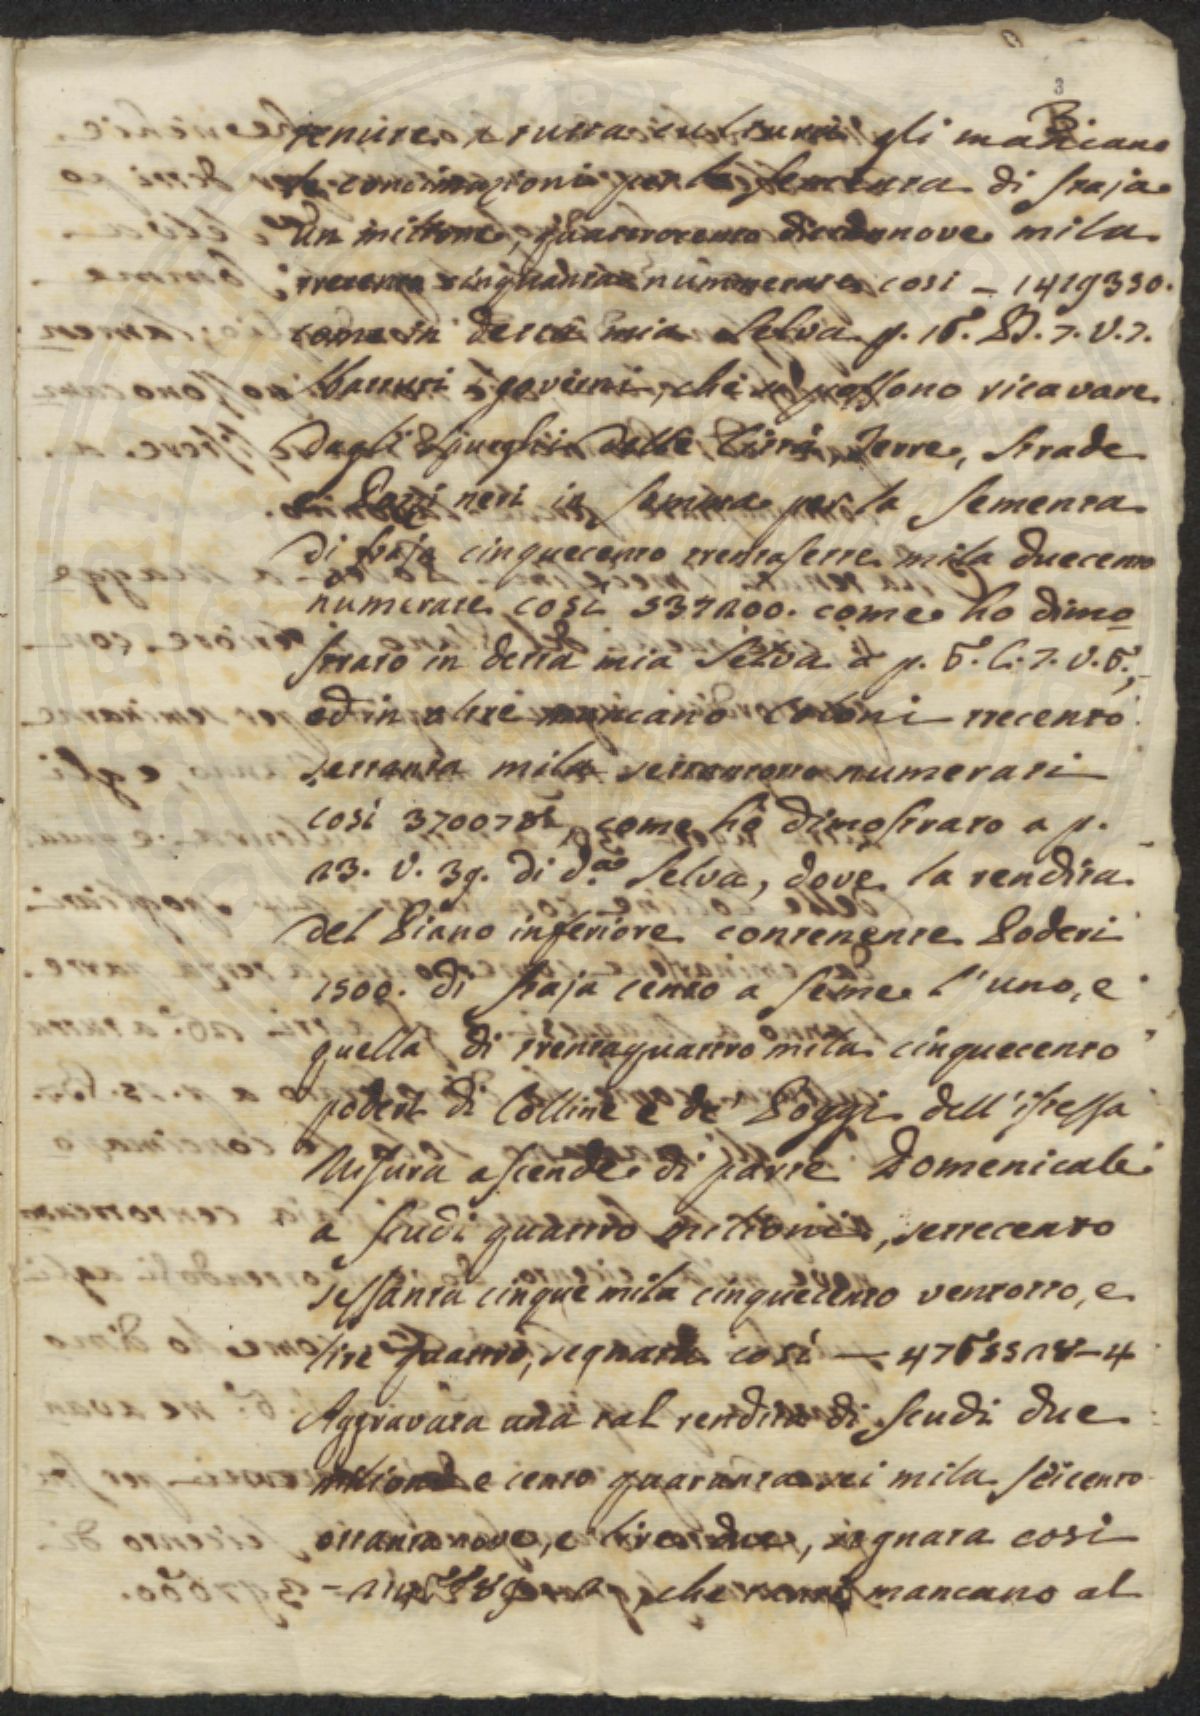 3
tenute a tutta cultura gli mancano
le concimazioni per la sementa di staja
Un milione, quattrocento diecinnove mila
trecento cinquanta nummerate così – 1419350.
come in detta mia Selva p. 16. D. 7. V. 7.
Attesi i governi, che si possono ricavare
Dagli Spurghi delle Città, Terre, Strade
e Pozzi neri in somma per la sementa
di staja cinquecento trentasette mila duecento
numerate così 537200. come ho dimo
strato in detta mia Selva a p. 6. C. 7. V. 6.,
ed in oltre mancano Coloni trecento
settanta mila settantotto numerati
così 370078, come hò dimostrato a p.
23. V. 39. di d.a Selva, dove la rendita
del Piano inferiore contenente Poderi
1500. di staja cento a seme l'uno, e
quella di trentaquattro mila cinquecento
poderi di Colline e de Poggi dell'istessa
Misura ascende di parte Domenicale
a scudi quattro milioni, settecento
sessanta cinque mila cinquecento ventotto, e
lire quattro, segnata così — 4765528–4
Aggravata una tal rendita di scudi due
milioni e cento quaranta sei mila seicento
ottantanove, e lire due, segnata così
– 2146689 – 2, che mancano al